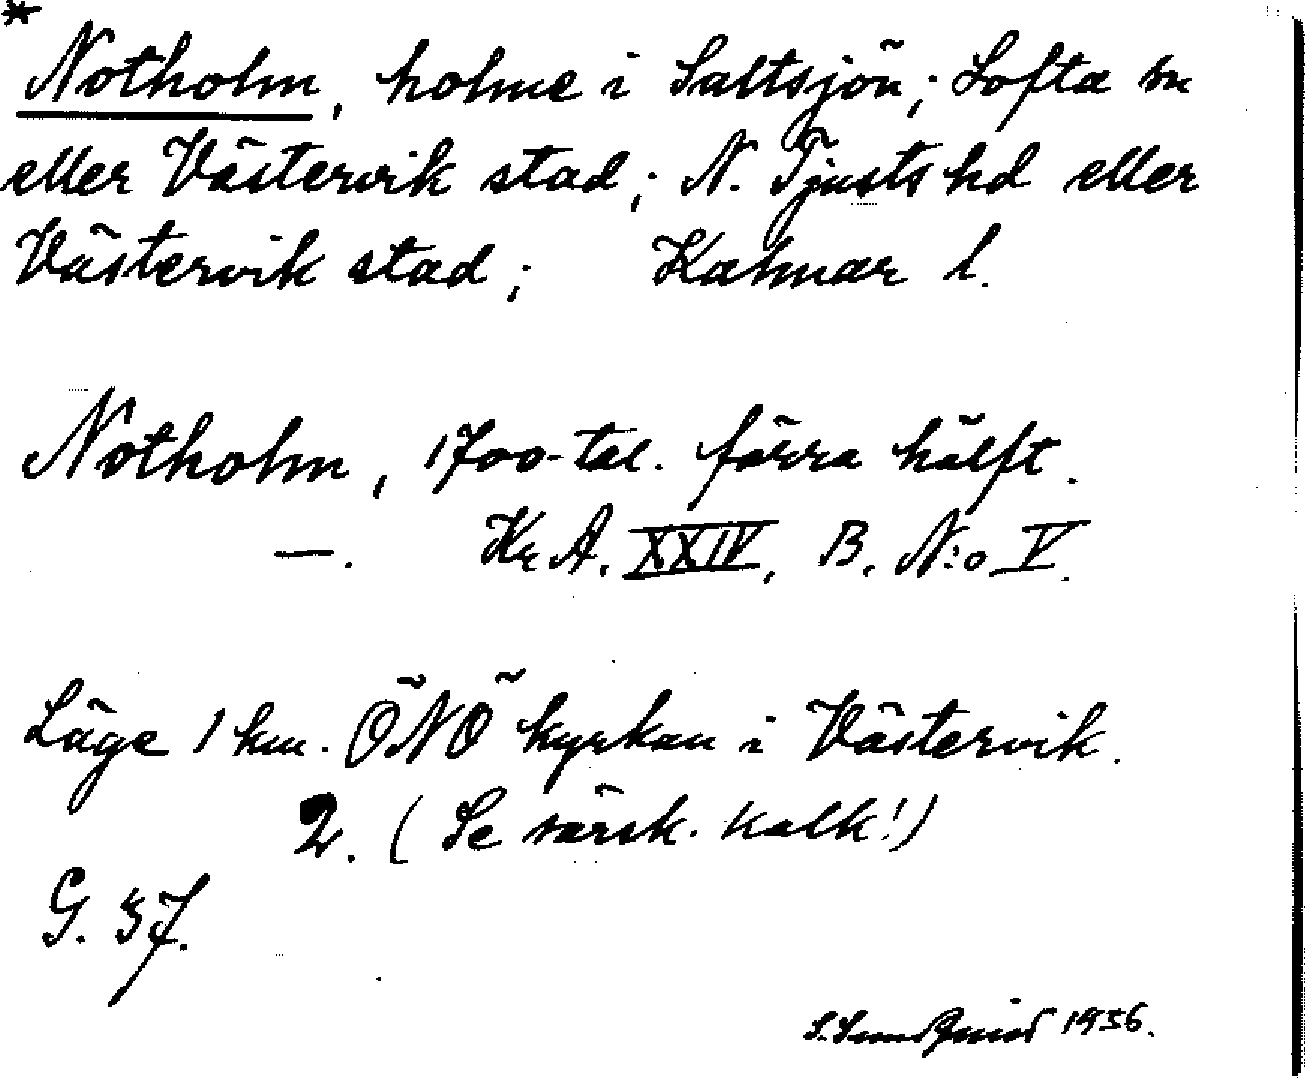 *
Notholm, holme i Saltsjön; Lofta sn
eller Västervik stad; N. Tjusts hd eller
Västervik stad; Kalmar l.
Notholm, 1700-tal. förra hälft.
—. Kr A. XXIV, B. N:o V.
Läge 1 km. ÖNÖ kyrkan i Västervik.
2. (Se särsk. kalk!)
G. 37.
S. Sundquist 1936.